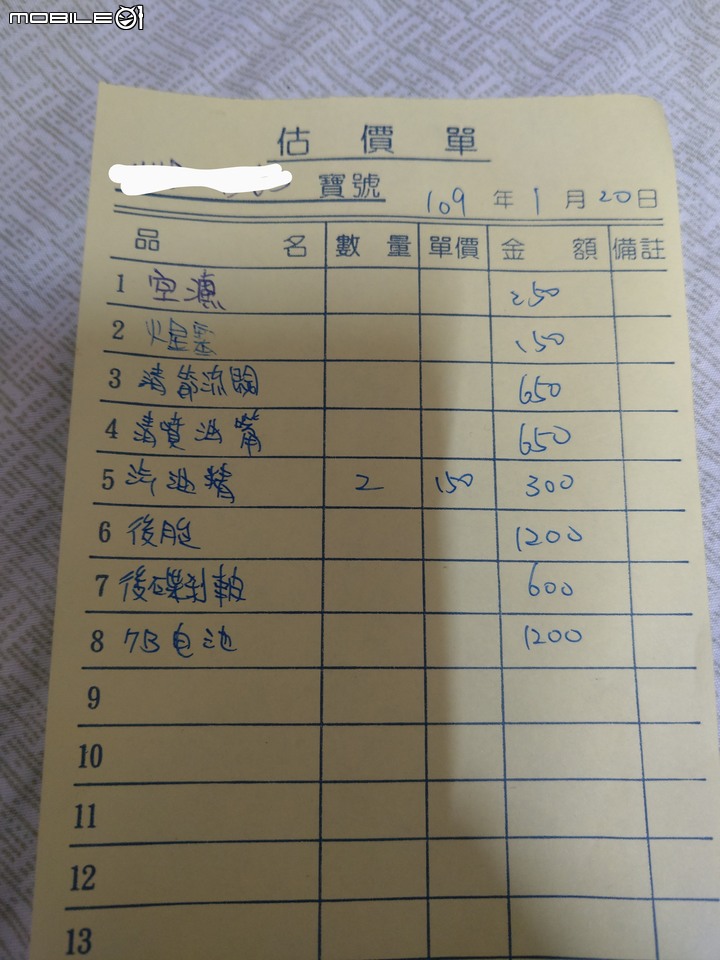 mobile01
估價單
寶號 109年1月20日
品名 數量 單價 金額 備註
1 空濾 250
2 火星塞 150
3 清節流閥 650
4 清噴油嘴 650
5 汽油精 2 150 300
6 後胎 1200
7 後碟剎車皮 600
8 7B电池 1200
9
10
11
12
13